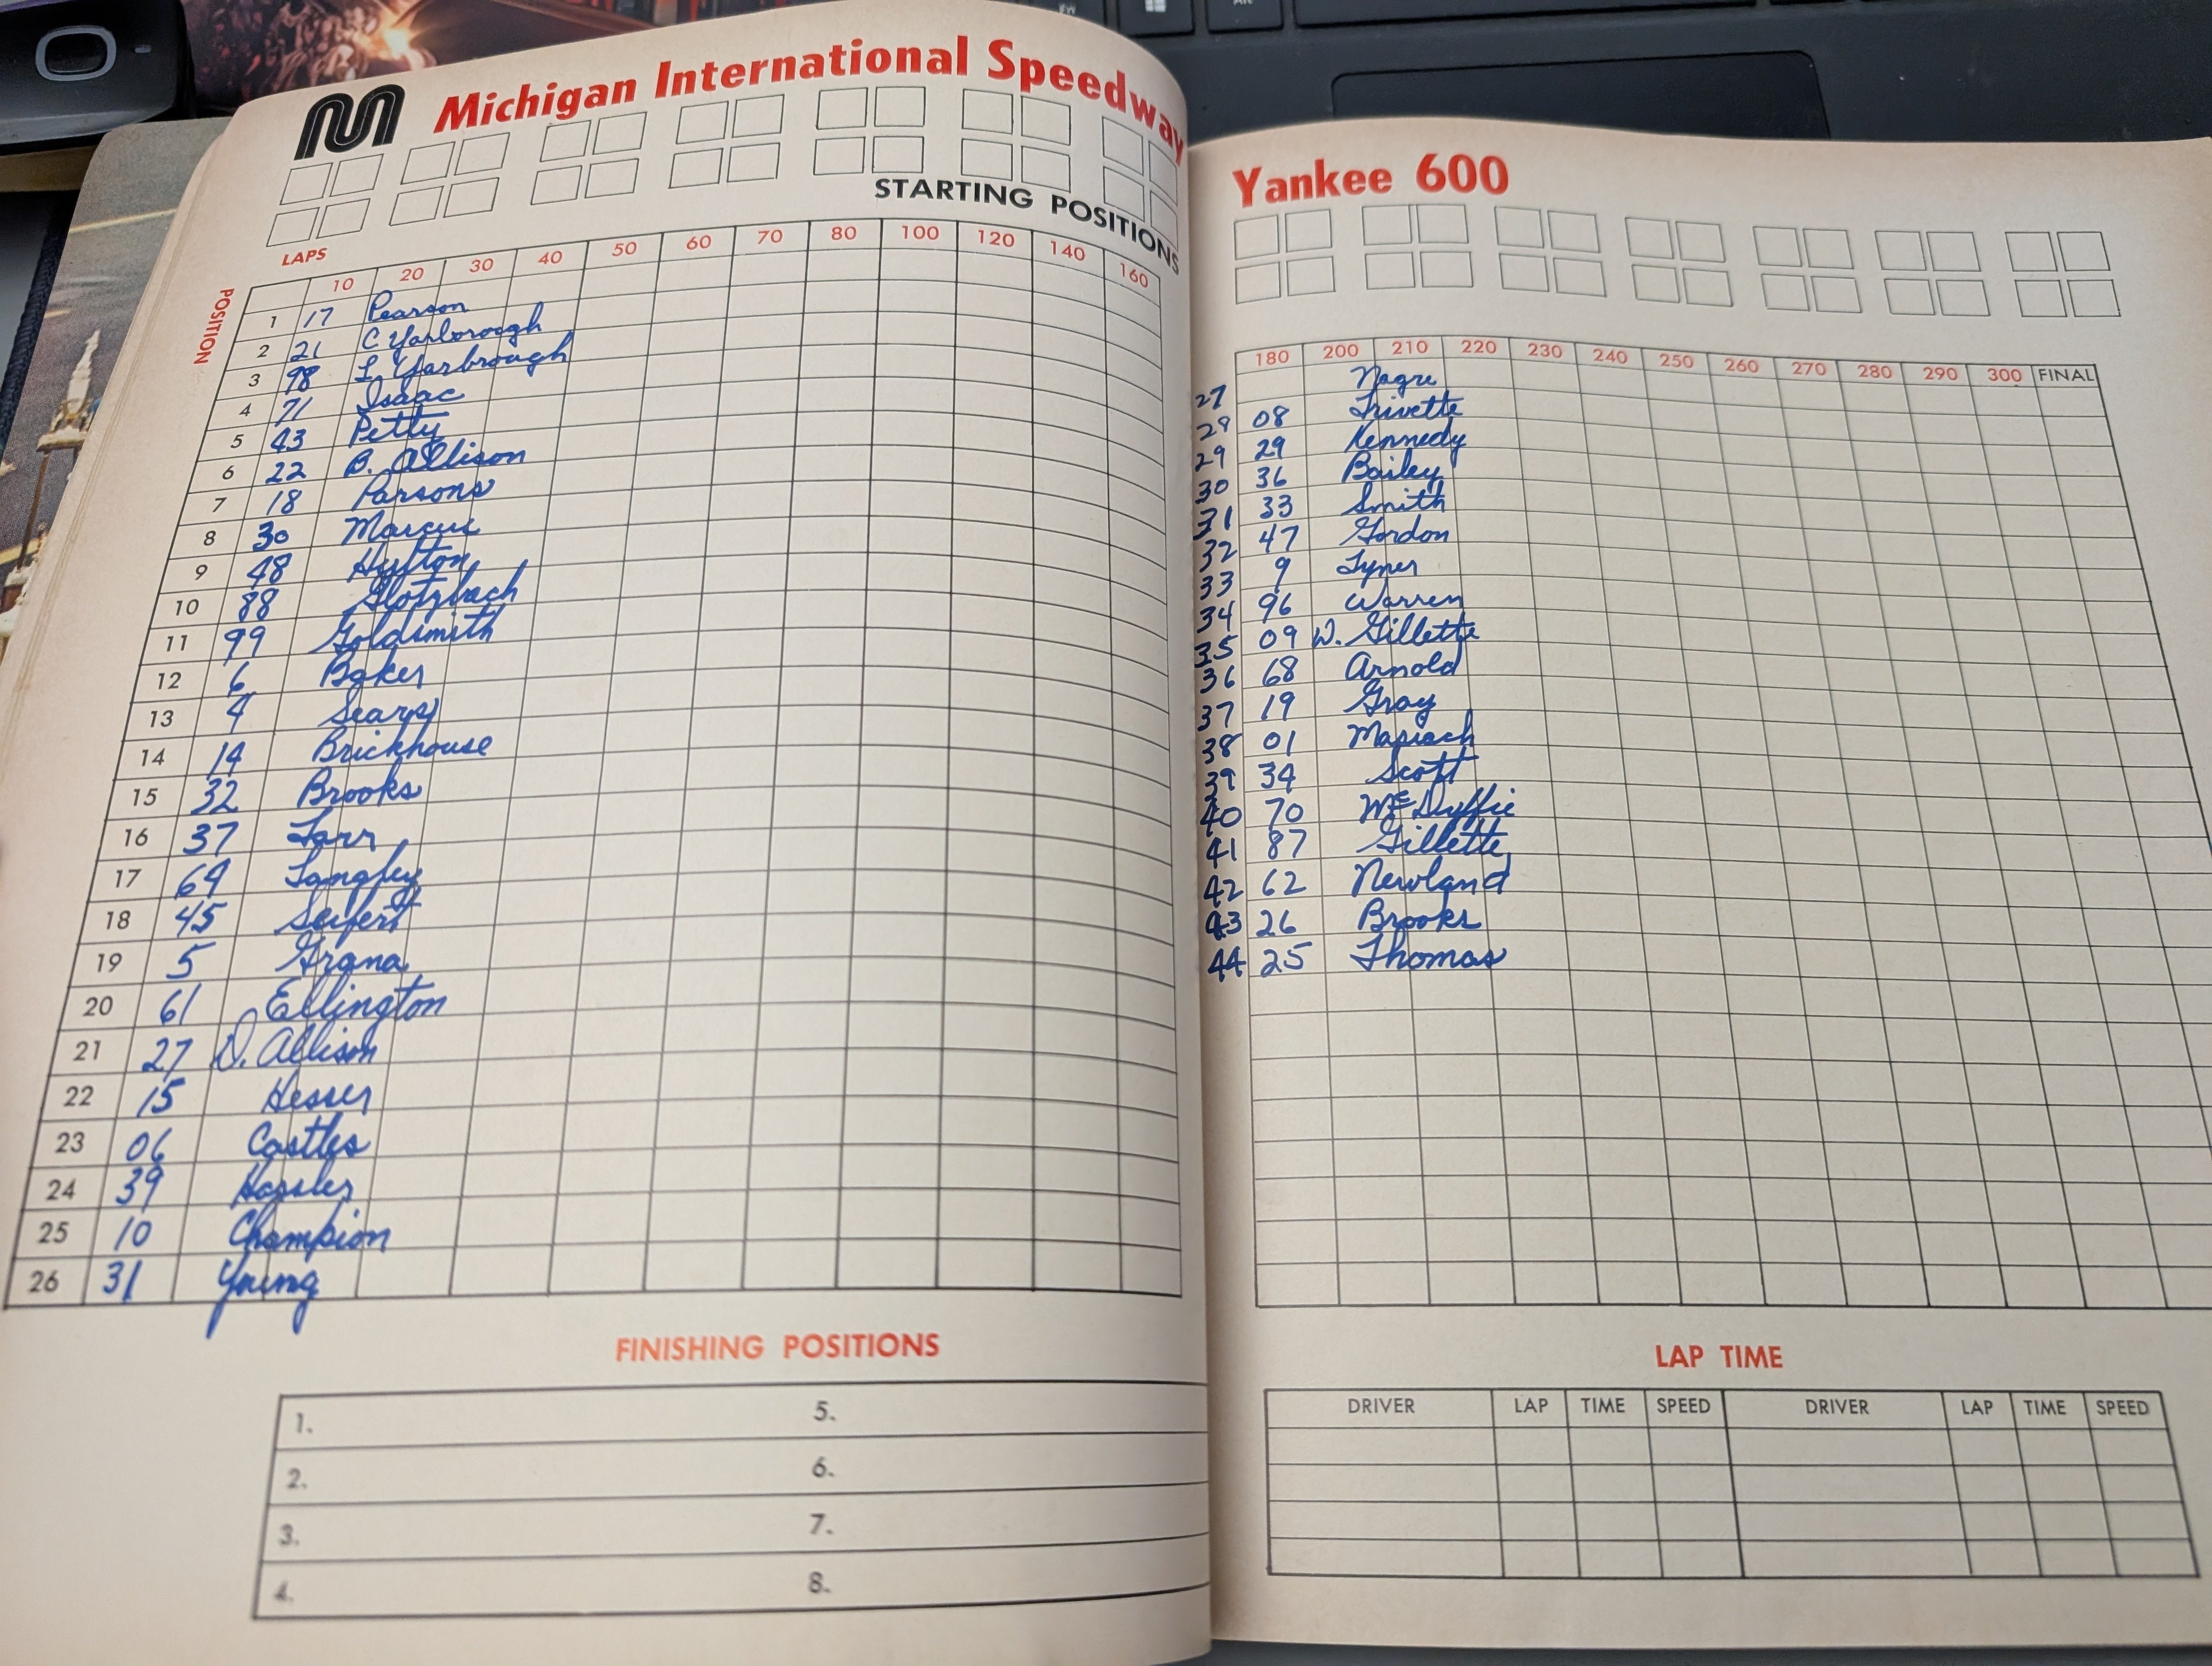 Michigan International Speedway
STARTING POSITIONS
LAPS
10 20 30 40 50 60 70 80 100 120 140 160
POSITION
1 17 Pearson
2 21 C Yarborough
3 98 L. Yarbrough
4 71 Isaac
5 43 Petty
6 22 B. Allison
7 18 Parsons
8 30 Marcus
9 48 Hylton
10 88 Glotzbach
11 99 Goldsmith
12 6 Baker
13 4 Sears
14 14 Brickhouse
15 32 Brooks
16 37 Tarr
17 64 Langley
18 45 Seifert
19 5 Grana
20 61 Ellington
21 27 D. Allison
22 15 Hesser
23 06 Castles
24 39 Hassler
25 10 Champion
26 31 Young
FINISHING POSITIONS
1. 5.
2. 6.
3. 7.
4. 8.
Yankee 600
180 200 210 220 230 240 250 260 270 280 290 300 FINAL
27 Negre
28 08 Trivette
29 29 Kennedy
30 36 Bailey
31 33 Smith
32 47 Gordon
33 9 Tyner
34 96 Warren
35 09 W. Gillette
36 68 Arnold
37 19 Gray
38 01
39 34 Scott
40 70 McDuffie
41 87 Gillette
42 62 Newland
43 26 Brooks
44 25 Thomas
LAP TIME
DRIVER LAP TIME SPEED DRIVER LAP TIME SPEED